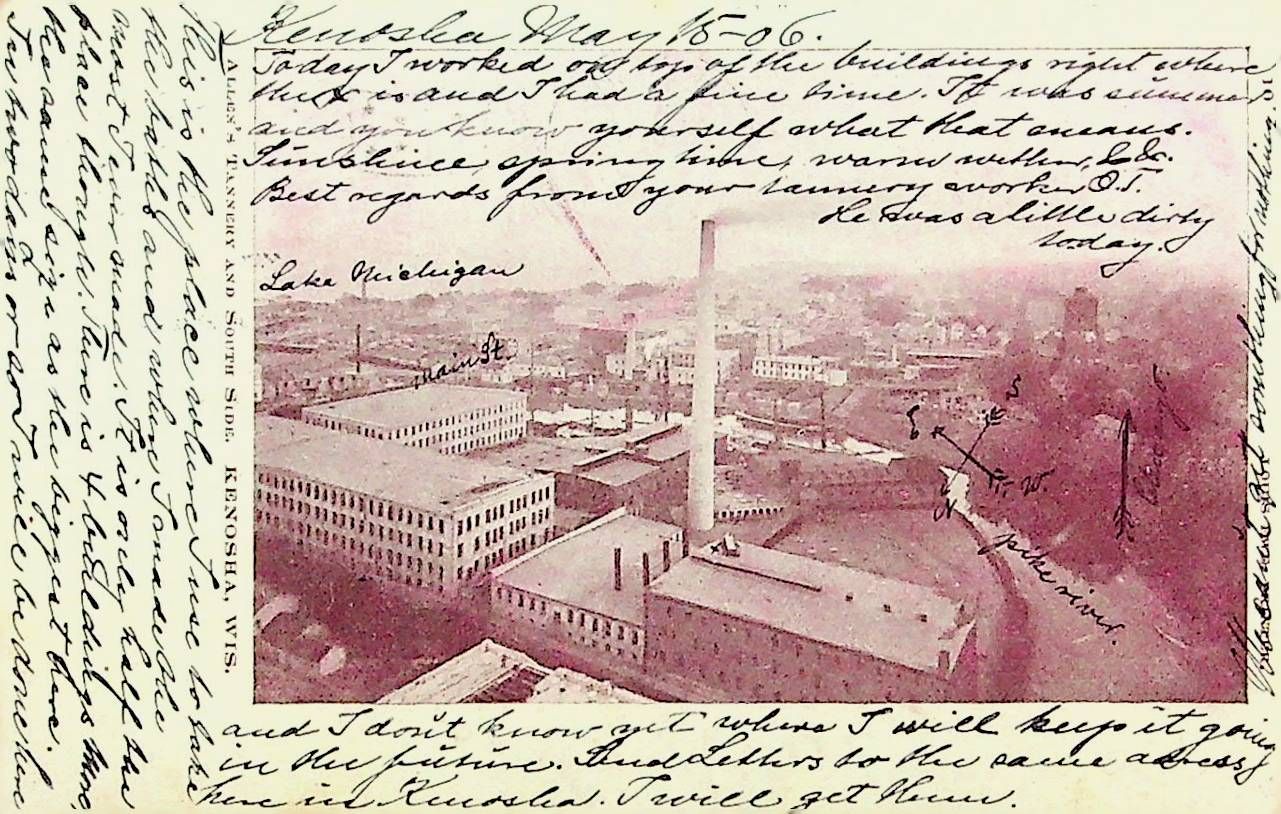 Kenosha May 15-06.
Today I worked on top of the buildings right where
the x is and I had a fine time. It was summer
and you know yourself what that means.
Sunshine, springtime, warm wether, &c.
Best regards from your tannery worker O.T.
He was a little dirty
today.
Lake Michigan
Main St.
E
S
W.
N
Chicago
pike river.
x
ALLEN'S TANNERY AND SOUTH SIDE. KENOSHA, WIS.
This is the place where I use to take
the baths and where I made the
most I ever made. It is only half the
place thought. There is 4 buildings more
the same size as the biggest here.
In two days or so I will be done here
and I don't know yet where I will keep it going
in the future. Send Letters to the same adress
here in Kenosha. I will get them.
something for nothing